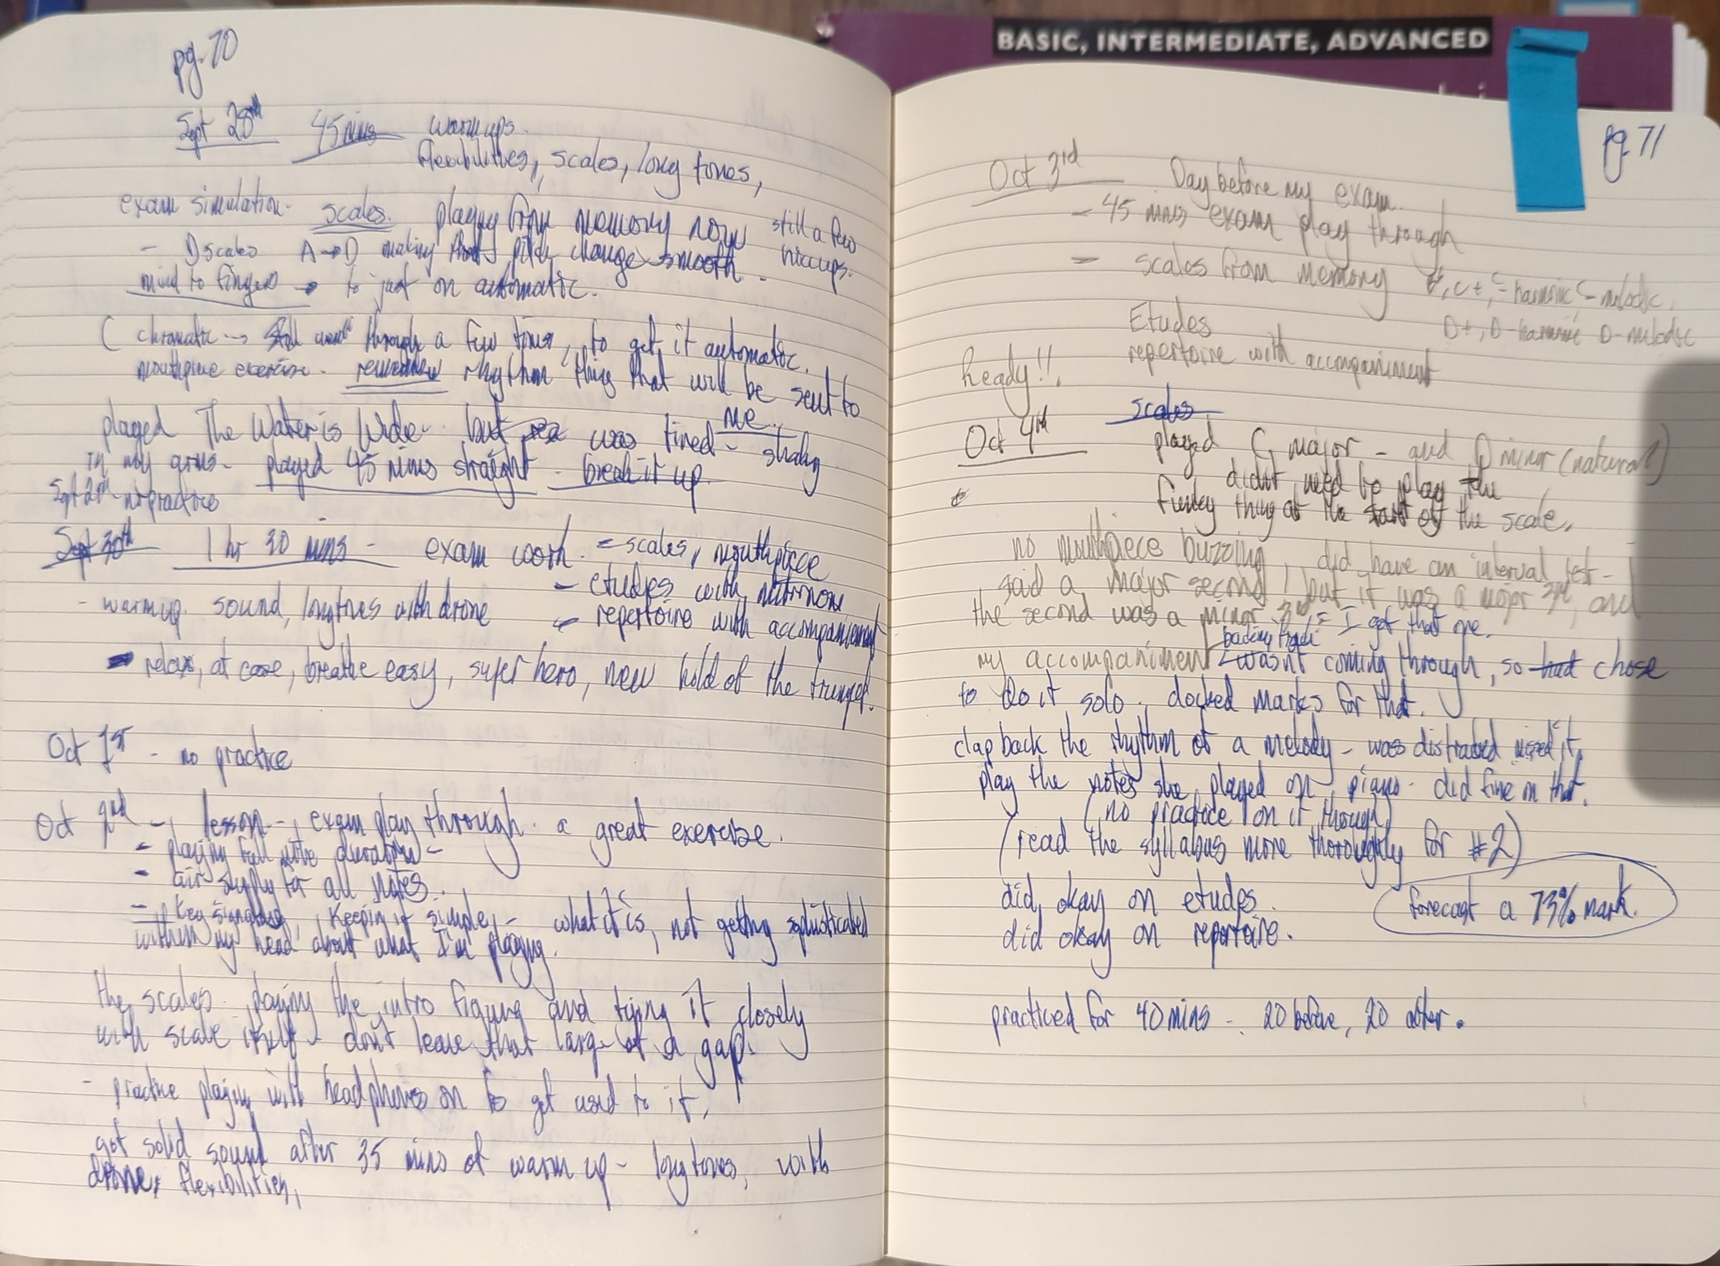 BASIC, INTERMEDIATE, ADVANCED
pg. 70
Sept 28th 45 mins warmups.
flexibilities, scales, long tones,
exam simulation. scales. playing from memory now still a few
- D scales A→D making pitch change smooth. hiccups.
mind to fingers → to just on automatic.
C chromatic → through a few times, to get it automatic.
mouthpiece exercise. rhythm thing that will be sent to
me
played The Water is Wide but was tired - shaky
in my arms. played 45 mins straight - break it up.
Sept 29th no practice
Sept 30th 1 hr 30 mins - exam work. - scales, mouthpiece
- etudes with metronome
- warmup. sound, longtones with drone - repertoire with accompaniment
- relax, at ease, breathe easy, super hero, new hold of the trumpet.
Oct 1st - no practice
Oct 2nd - lesson - exam play through. a great exercise.
- playing full note duration -
- air supply for all notes.
- key signature, keeping it simple - what it is, not getting sophisticated
within my head about what I'm playing.
the scales. playing the intro figure and tying it closely
with scale itself - don't leave that large of a gap.
- practice playing with headphones on to get used to it.
got solid sound after 35 mins of warm up - longtones, with
drone, flexibilities,
pg. 71
Oct 3rd Day before my exam.
- 45 mins exam play through
- scales from memory C+, C- harmonic C- melodic.
D+, D- harmonic D- melodic
Etudes
repertoire with accompaniment
Ready!!
scales
Oct 4th played C major - and D minor (natural)
didnt need to play the
funky thing at the start of the scale.
no mouthpiece buzzing, did have an interval test -
said a major second, but it was a major 3rd, and
the second was a minor 3rd = I got that one.
backing track
my accompaniment wasn't coming through, so had chose
to do it solo. docked marks for that.
clap back the rhythm of a melody - was distracted missed it.
play the notes she played on piano - did fine on that.
(no practice on it though)
(read the syllabus more thoroughly for #2)
did okay on etudes.
forecast a 73% mark.
did okay on repertoire.
practiced for 40 mins - 20 before, 20 after.